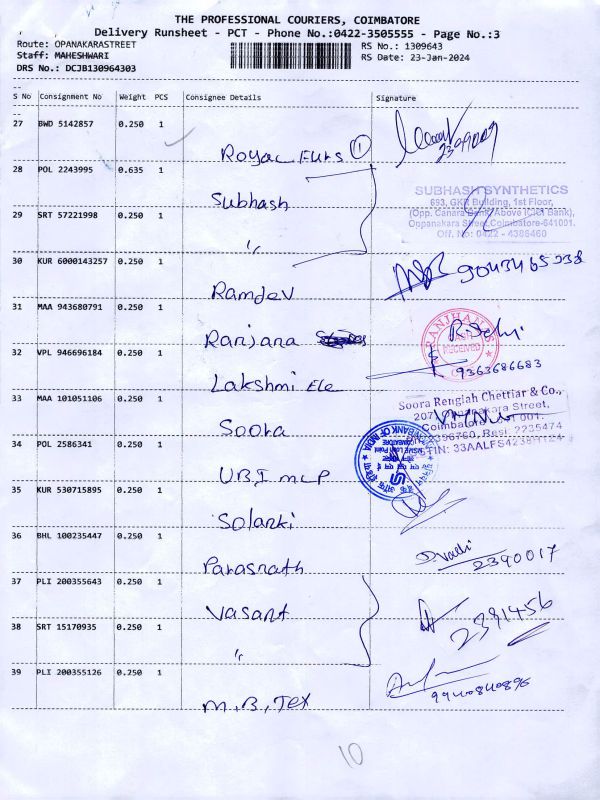 THE PROFESSIONAL COURIERS, COIMBATORE
Delivery Runsheet - PCT - Phone No.:0422-3505555 - Page No.:3
Route: OPANAKARASTREET
RS No.: 1309643
Staff: MAHESHWARI
RS Date: 23-Jan-2024
DRS No.: DCJB130964303
S No Consignment No Weight PCS Consignee Details Signature
27 BWD 5142857 0.250 1
Royal Furs 1
28 POL 2243995 0.635 1
Subhash
SUBHASH SYNTHETICS
693, GKR Building, 1st Floor,
(Opp. Canara Bank, Above ICICI Bank),
Oppanakara Street, Coimbatore-641001.
Off. No: 0422 - 4386460
29 SRT 57221998 0.250 1
"
30 KUR 6000143257 0.250 1
Ramdev
31 MAA 943680791 0.250 1
Ranjana
RANJHANAS
CASH
RECEIVED
9363686683
32 VPL 946696184 0.250 1
Lakshmi Ele
33 MAA 101051106 0.250 1
Soora
Soora Rengiah Chettiar & Co.,
34 POL 2586341 0.250 1
UBI MCP
35 KUR 530715895 0.250 1
Solanki
36 BHL 100235447 0.250 1
Parasnath
2390017
37 PLI 200355643 0.250 1
Vasant
2381456
38 SRT 15170935 0.250 1
"
39 PLI 200355126 0.250 1
M.B, Tex
10